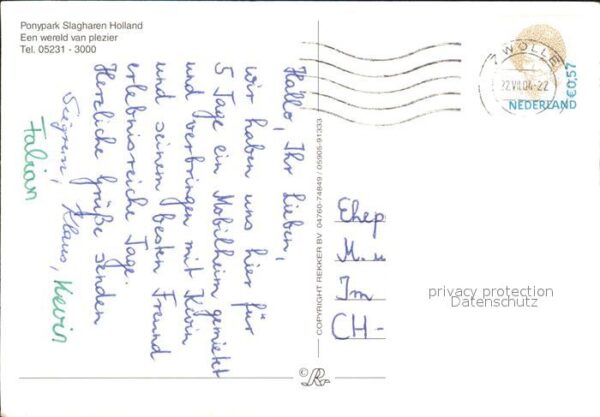 Ponypark Slagharen Holland
Een wereld van plezier
Tel. 05231 - 3000
Hallo, Ihr Lieben,
wir haben uns hier für
5 Tage ein Mobilheim gemietet
und verbringen mit Kevin
und seinem besten Freund
erlebnisreiche Tage.
Herzliche Grüße senden
Klaus, Kevin
Fabian
COPYRIGHT REKKER BV 04760-74849 / 05905-91333
©R
ZWOLLE
22 VII.04-22
€0,57
NEDERLAND
Ehep
M. u
Im
CH-
privacy protection
Datenschutz